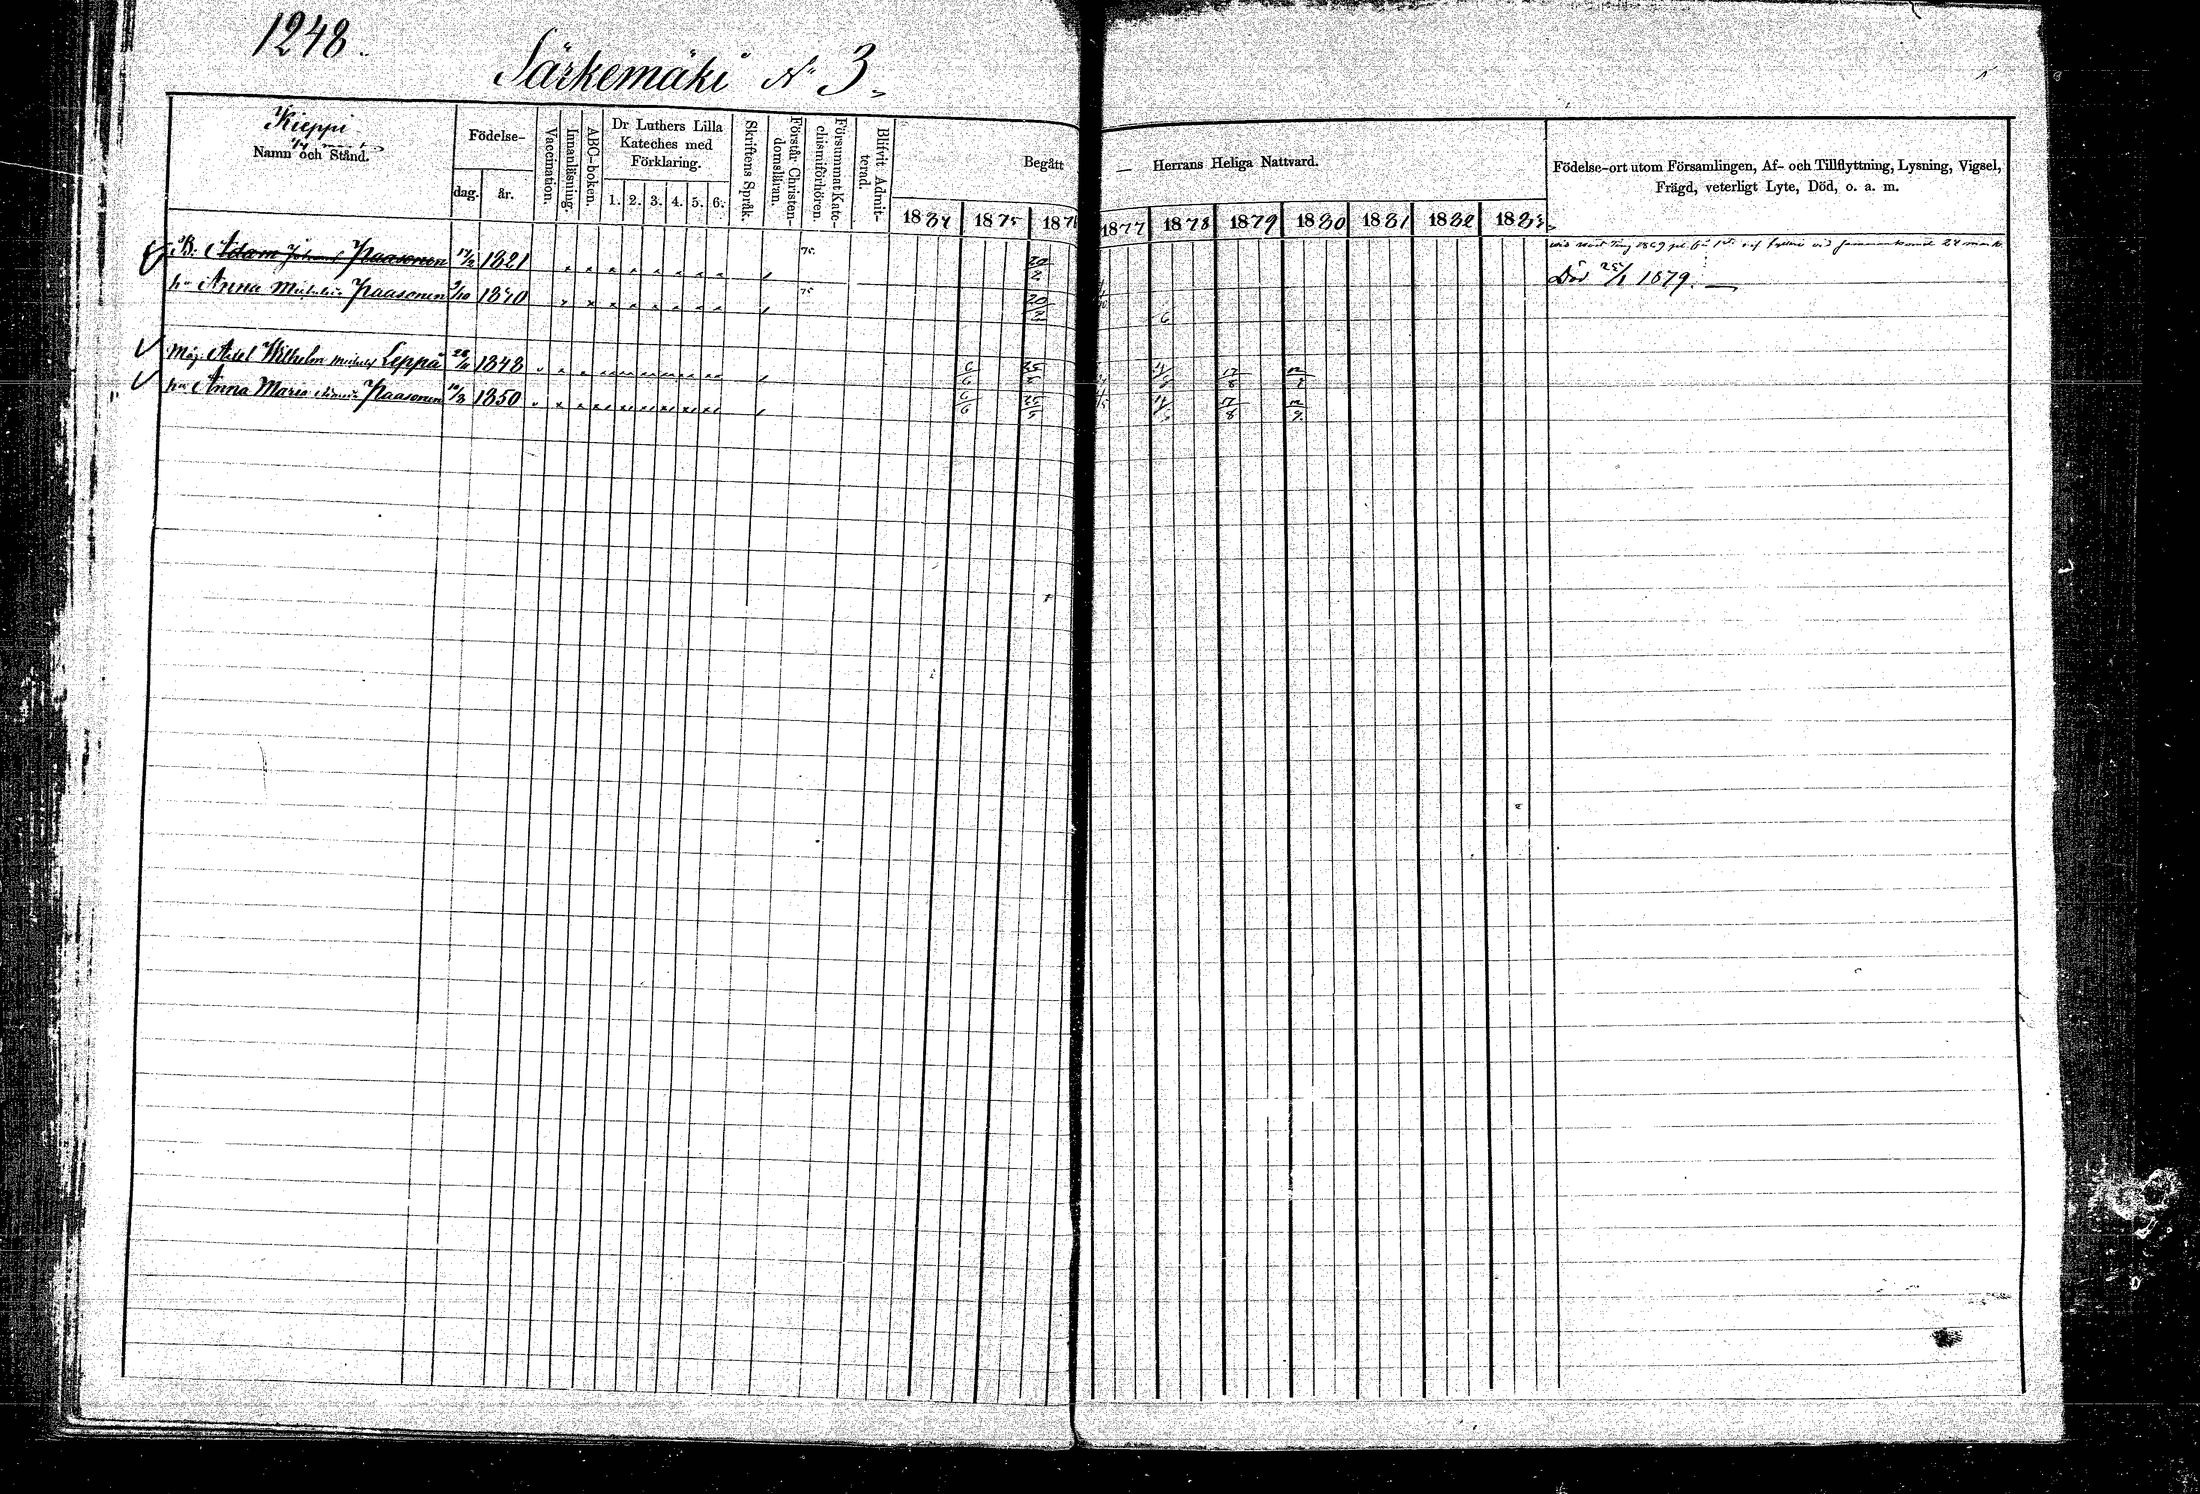 1248.
Särkemäki No 3.
Kieppi
Namn och Stånd.
Födelse-
dag.
år.
Vaccination.
Innanläsning.
ABC-boken.
Dr Luthers Lilla
Kateches med
Förklaring.
1. 2. 3. 4. 5. 6.
Skriftens Språk.
Förstår Christen-
domsläran.
Försummat Kate-
chismiförhören.
Blifvit Admit-
terad.
Begått — Herrans Heliga Nattvard.
1834 1875 187 1877 1878 1879 1880 1881 1882 1883
Födelse-ort utom Församlingen, Af- och Tillflyttning, Lysning, Vigsel,
Frägd, veterligt Lyte, Död, o. a. m.
B. Adam Johanss Paasonen 1821 75. 20/2
Död 25/1 1879.
hu Anna Paasonen 9/10 1840 75 20/2 6
Måg. Axel Wilhelm Leppä 28/11 1848 6/6 25/5 17/8
hu Anna Maria Paasonen 10/3 1850 6/6 25/5 17/8 12/9